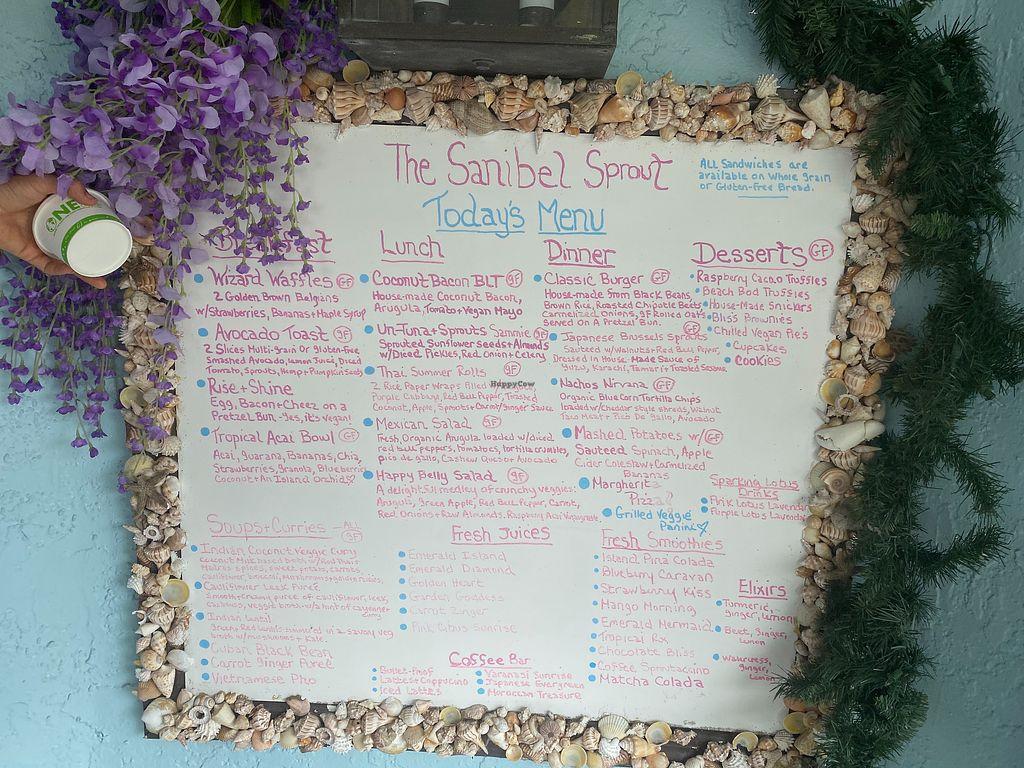 The Sanibel Sprout
Today's Menu
ALL Sandwiches are
available on Whole Grain
or Gluten-Free Bread.
ONE
Breakfast
Wizard Waffles GF
2 Golden Brown Belgians
w/Strawberries, Bananas + Maple Syrup
Avocado Toast GF
2 Slices Multi-Grain or Gluten-Free
Smashed Avocado, Lemon Juice, Diced
Tomato, Sprouts, Hemp + Pumpkin Seeds
Rise + Shine
Egg, Bacon + Cheez on a
Pretzel Bun - Yes, it's vegan!
Tropical Acai Bowl GF
Acai, Guarana, Bananas, Chia,
Strawberries, Granola, Blueberries
Coconut + An Island Orchid
Lunch
Coconut Bacon BLT GF
House-made Coconut Bacon,
Arugula, Tomato + Vegan Mayo
Un-Tuna + Sprouts Sammie GF
Sprouted Sunflower Seeds + Almonds
w/Diced Pickles, Red Onion + Celery
Thai Summer Rolls GF
2 Rice Paper Wraps filled
HappyCow
Purple Cabbage, Red Bell Pepper, Toasted
Coconut, Apple, Sprouts + Carrot/Ginger Sauce
Mexican Salad GF
Fresh, Organic Arugula loaded w/diced
red bell peppers, tomatoes, tortilla crumbles,
pico de gallo, Cashew Queso + Avocado
Happy Belly Salad GF
A delightful medley of crunchy veggies.
Arugula, Green Apple, Red Bell Pepper, Carrot,
Red Onions + Raw Almonds, Raspberry Acai Vinaigrette
Dinner
Classic Burger GF
House-made from Black Beans
Brown Rice, Roasted Chipotle Beets
Carmelized Onions, GF Rolled Oats
Served On A Pretzel Bun.
GF
Japanese Brussels Sprouts
Sauteed w/Walnuts + Red Bell Pepper,
Dressed in House-Made Sauce of
Yuzu, Karachi, Tamari + Toasted Sesame
Nachos Nirvana GF
Organic Blue Corn Tortilla Chips
loaded w/cheddar style shreds, Walnut
Taco Meat + Pico De Gallo, Avocado
Mashed Potatoes w/ GF
Sauteed Spinach, Apple
Cider Coleslaw + Carmelized
Bananas
Margherita
Pizza
Grilled Veggie
Panini
Desserts GF
Raspberry Cacao Truffles
Beach Bad Truffles
House-Made Snickers
Bliss Brownies
Chilled Vegan Pie's
Cupcakes
Cookies
Sparking Lotus
Drinks
Pink Lotus Lavender
Purple Lotus Lavender
Soups + Curries - ALL GF
Indian Coconut Veggie Curry
coconut milk based broth w/Red Thai +
Madras spices, sweet potato, carrots,
cauliflower, broccoli, mushrooms +
Cauliflower Leek Puree
Smooth + creamy puree of cauliflower, leek,
cashews, veggie broth w/a hint of cayenne
Indian Lentil
Green + Red lentils simmered in a savory veg
broth w/mushrooms + Kale
Cuban Black Bean
Carrot Ginger Puree
Vietnamese Pho
Fresh Juices
Emerald Island
Emerald Diamond
Golden Heart
Garden Goddess
Carrot Zinger
Pink Citrus Sunrise
Fresh Smoothies
Island Pina Colada
Blueberry Caravan
Strawberry Kiss
Mango Morning
Emerald Mermaid
Tropical Rx
Chocolate Bliss
Coffee Sproutaccino
Matcha Colada
Elixirs
Turmeric,
Ginger, Lemon
Beet, Ginger,
Lemon
Watercress,
Ginger,
Lemon
Coffee Bar
Bullet-Proof
Lattes + Cappuccino
Iced Lattes
Varanasi Sunrise
Japanese Evergreen
Moroccan Treasure